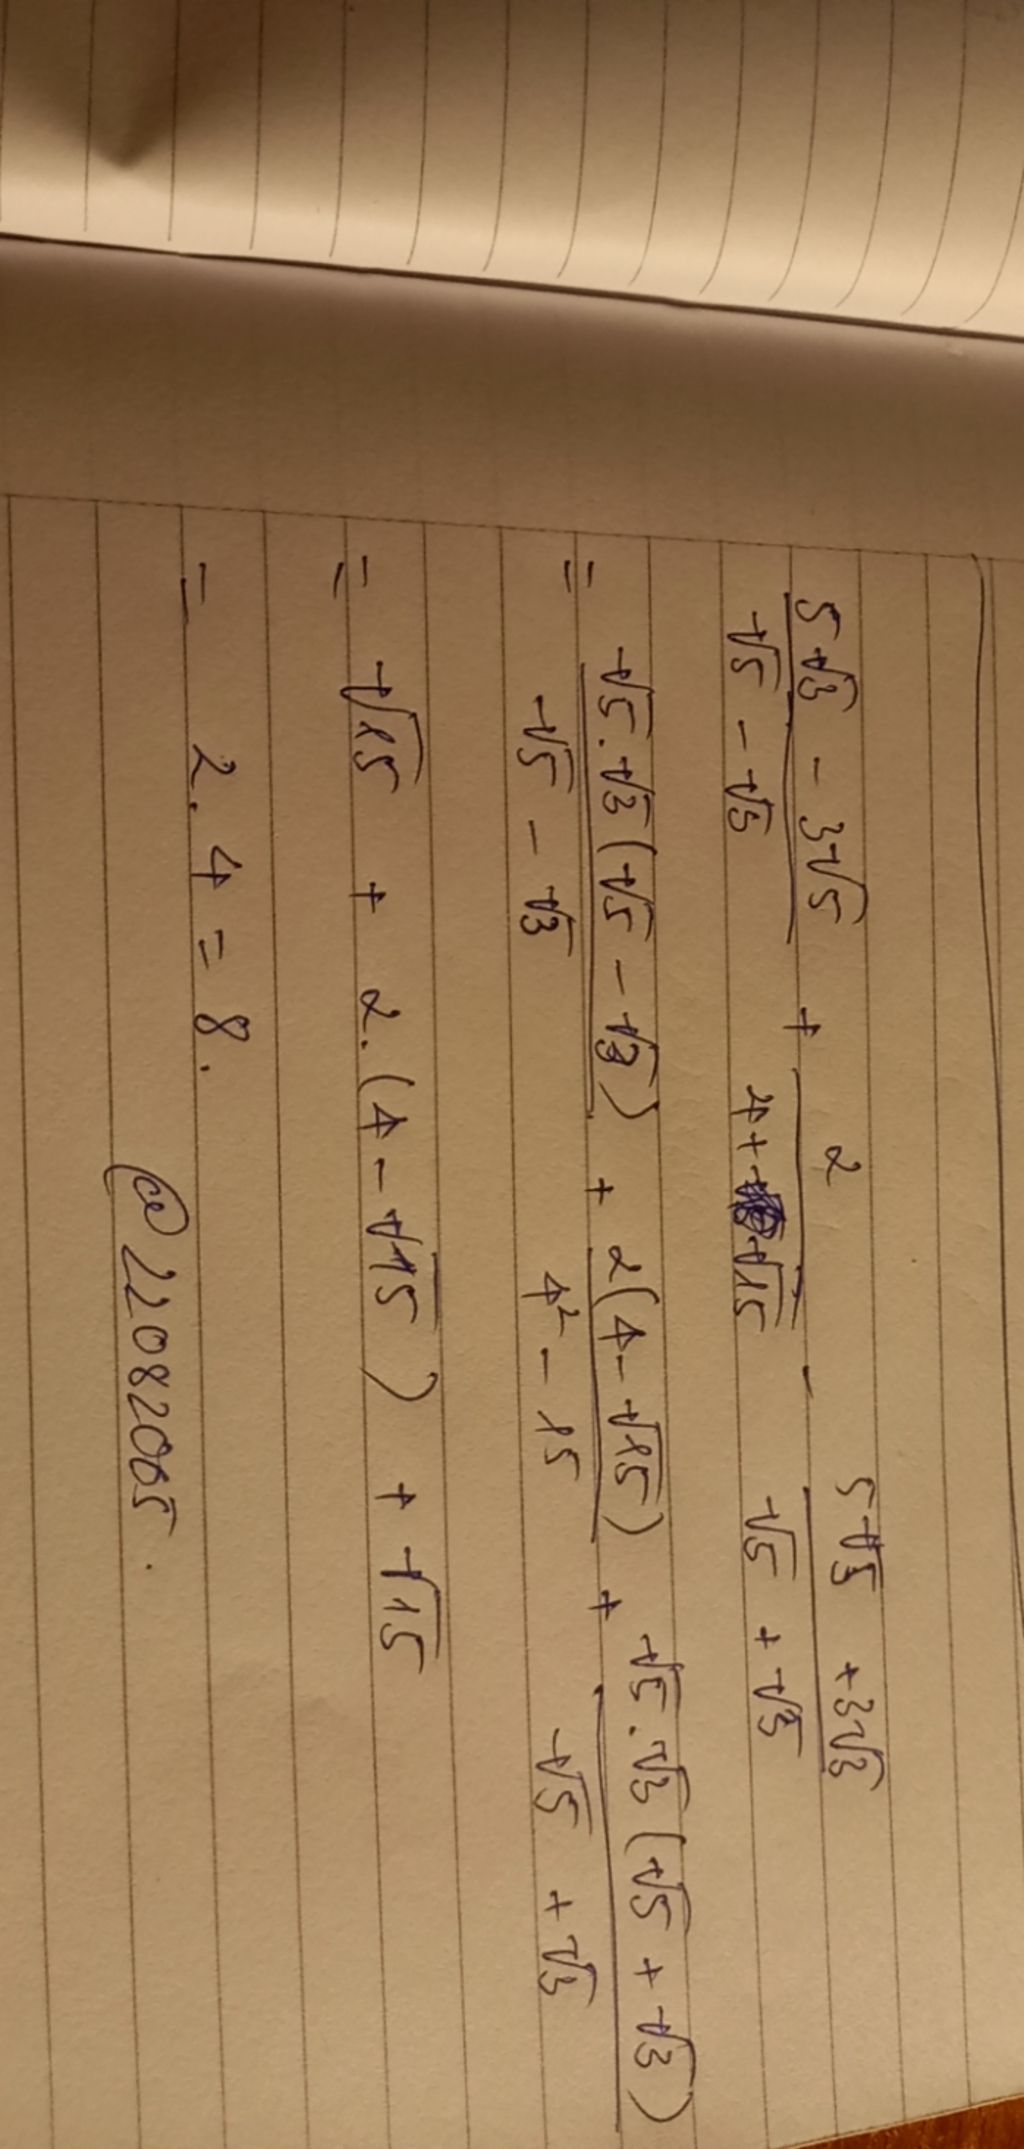 (5√3 - 3√5)/(√5 - √3) + 2/(4+√15) - (5√5 + 3√3)/(√5 + √3)
= (√5.√3(√5 - √3))/(√5 - √3) + (2(4-√15))/(4² - 15) + (√5.√3(√5 + √3))/(√5 + √3)
= √15 + 2.(4-√15) + √15
= 2.4 = 8.
@22082005.